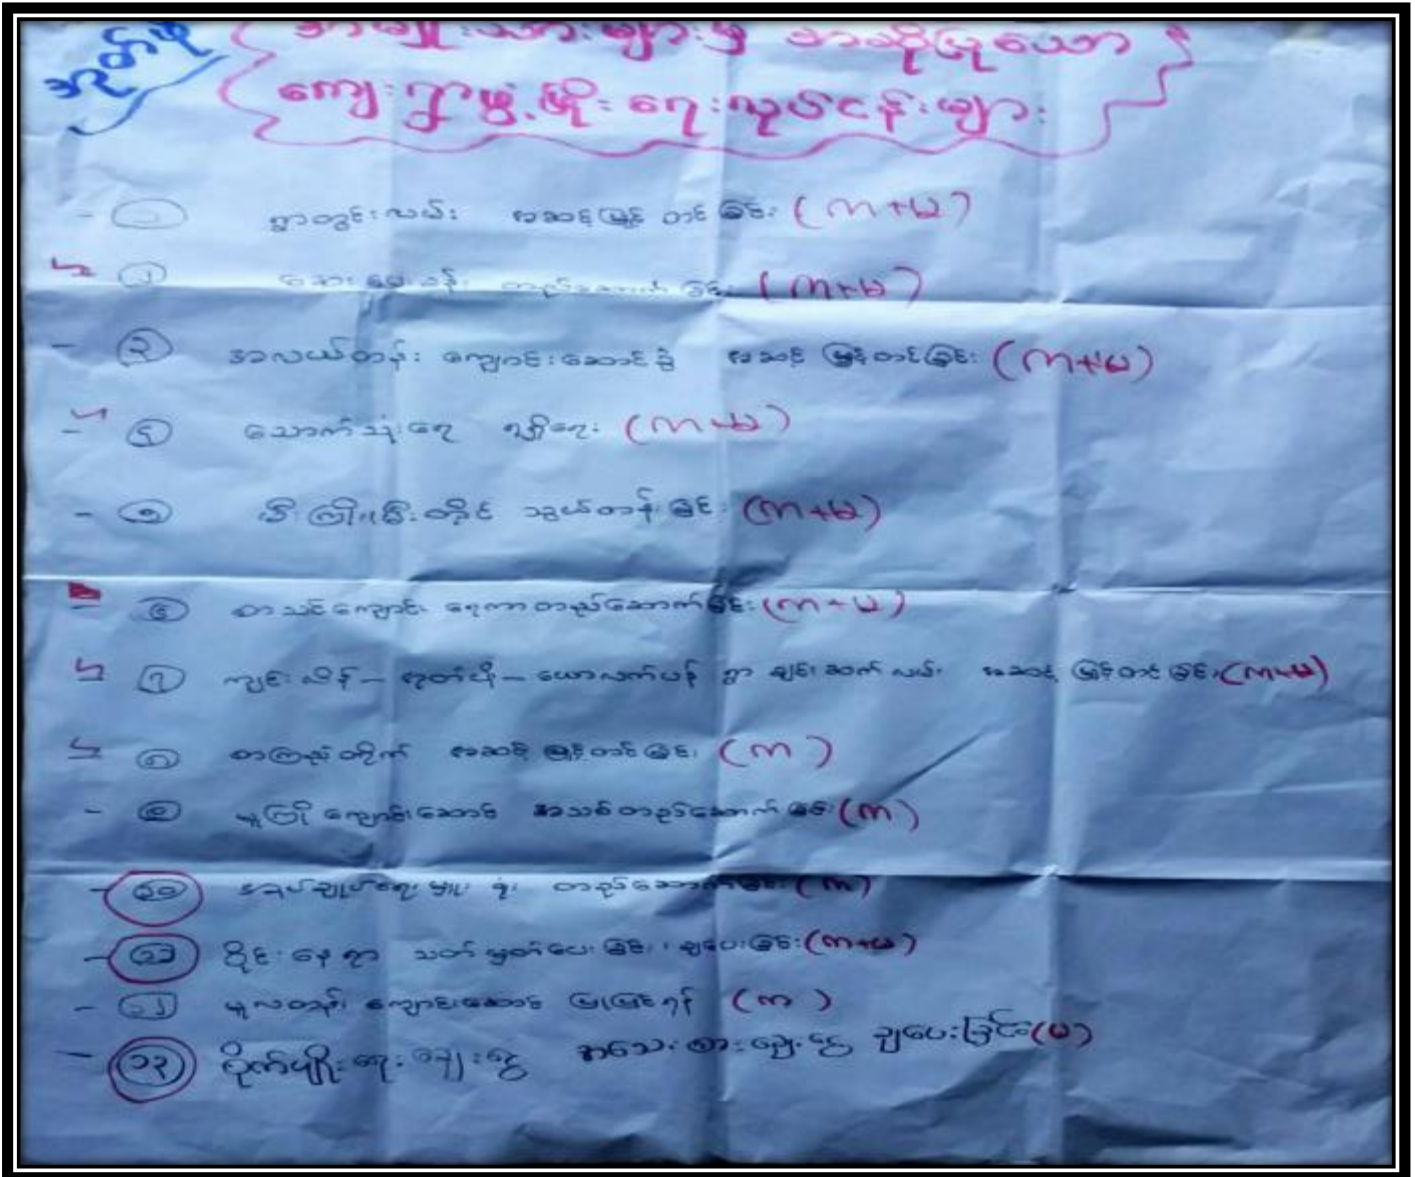 အုတ်ဖို
အမျိုးသားများမှ အဆိုပြုသော
ကျေးရွာဖွံ့ဖြိုးရေးလုပ်ငန်းများ
- ၁ ရွာတွင်းလမ်း အဆင့်မြှင့်တင်ခြင်း (က+မ)
၂ ဆေးပေးခန်း တည်ဆောက်ခြင်း (က+မ)
- ၃ အလယ်တန်း ကျောင်းဆောင်ခွဲ အဆင့်မြှင့်တင်ခြင်း (က+မ)
- ၄ သောက်သုံးရေ ရရှိရေး (က+မ)
- ၅ မီးကြိုး၊မီးတိုင် သွယ်တန်းခြင်း (က+မ)
- ၆ စာသင်ကျောင်း ရေကာတည်ဆောက်ခြင်း (က+မ)
၇ ကျင်းလိန် – အုတ်ဖို – ယောလက်ပန် ရွာချင်းဆက်လမ်း အဆင့်မြှင့်တင်ခြင်း (က+မ)
၈ စာကြည့်တိုက် အဆင့်မြှင့်တင်ခြင်း (က)
- ၉ မူကြိုကျောင်းဆောင် အသစ်တည်ဆောက်ခြင်း (က)
- ၁၀ အုပ်ချုပ်ရေးမှူး ရုံး တည်ဆောက်ခြင်း (က)
- ၁၁ ဝိုင်းနေရာ သတ်မှတ်ပေးခြင်း၊ ချပေးခြင်း (က+မ)
- ၁၂ မူလတန်း ကျောင်းဆောင် ပြုပြင်ရန် (က)
- ၁၃ စိုက်ပျိုးရေးချေးငွေ အသေးစားချေးငွေ ချပေးခြင်း (မ)